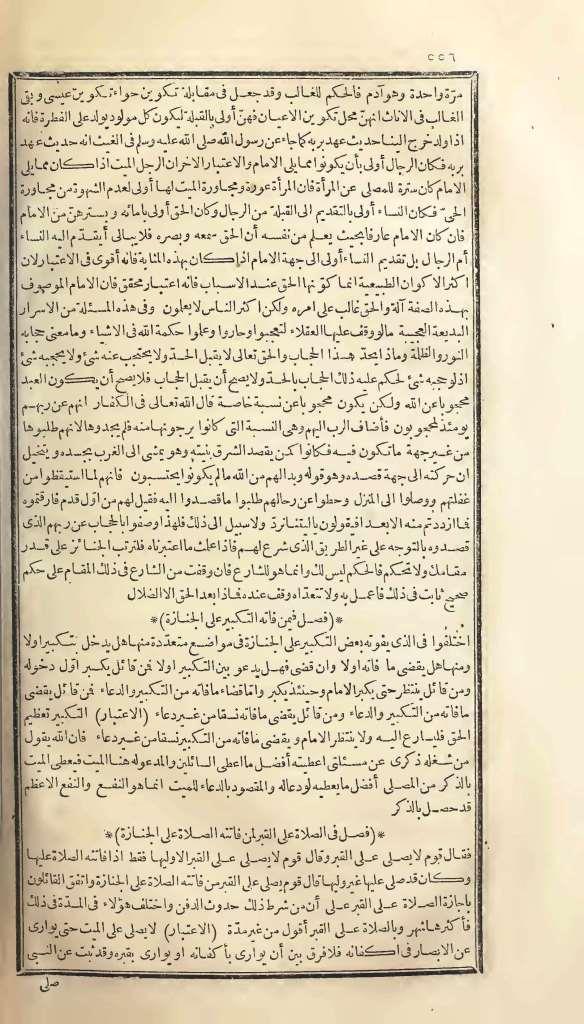 ٥٥٦
مرّة واحدة وهو آدم فالحكم للغالب وقد جعل فى مقابلة تكوين حواء تكوين عيسى وبقى
الغالب فى الاناث انهنّ محل تكوين الاعيان فهنّ أولى بالقبلة ليكون كل مولود يولد على الفطرة فانه
اذا ولد خرج الينا حديث عهد بربه كما جاء عن رسول الله صلى الله عليه وسلم فى الغيث انه حديث عهد
بربه فكان الرجال أولى بأن يكونوا مما يلى الامام والاعتبار الاخر ان الرجل الميت اذا كان مما يلى
الامام كان سترة للمصلى عن المرأة فان المرأة عورة ومجاورة الميت لها أولى لعدم الشهوة من مجاورة
الحىّ فكان النساء أولى بالتقديم الى القبلة من الرجال وكان الحق أولى بامائه ويسترهنّ من الامام
فان كان الامام عارفا بحيث يعلم من نفسه أن الحق سمعه وبصره فلا يبالى أيقدّم اليه النساء
أم الرجال بل تقديم النساء أولى الى جهة الامام اذا كان بهذه المثابة فانه أقوى فى الاعتبار لان
اكثر الاكوان الطبيعية انما كوّنها الحق عند الاسباب فانه اعتبار محقق فان الامام الموصوف
بهذه الصفة آلة والحق غالب على امره ولكن اكثر الناس لا يعلمون وفى هذه المسئلة من الاسرار
البديعة العجيبة ما لو وقف عليها العقلاء لتعجبوا وحاروا وعلموا حكمة الله فى الاشياء وما معنى حجابه
النور والظلمة وماذا يحدّ هذا الحجاب والحق تعالى لا يقبل الحدّ ولا يحتجب عنه شئ ولا يحجبه شئ
اذ لو حجبه شئ لحكم عليه ذلك الحجاب بالحدّ ولا يصح أن يقبل الحجاب فلا يصح أن يكون العبد
محجوبا عن الله ولكن يكون محجوبا عن نسبة خاصة قال الله تعالى فى الكفار انهم عن ربهم
يومئذ لمحجوبون فأضاف الرب اليهم وهى النسبة التى كانوا يرجونها منه فلم يجدوها لانهم طلبوها
من غير جهة ما تكون فيه فكانوا كمن يقصد الشرق بنيته وهو يمشى الى الغرب بجسده ويتخيل
ان حركته الى جهة قصده وهو قوله وبدا لهم من الله ما لم يكونوا يحتسبون فانهم لما استيقظوا من
غفلتهم ووصلوا الى المنزل وحطوا عن رحالهم طلبوا ما قصدوا اليه فقيل لهم من اوّل قدم فارقتموه
فما ازددتم منه الا بعدا فيقولون يا ليتنا نردّ ولا سبيل الى ذلك فلهذا وصفوا بالحجاب عن ربهم الذى
قصدوه بالتوجه على غير الطريق الذى شرع لهم فاذا علمت ما اعتبرناه فلترتب الجنائز على قدر
مقامك ولا تحكم فالحكم ليس لك وانما هو للشارع فان وقفت من الشارع فى ذلك المقام على حكم
صحيح ثابت فى ذلك فاعمل به ولا تتعدّاه وقف عنده فماذا بعد الحق الا الضلال
*(فصل فيمن فاته التكبير على الجنازة)*
اختلفوا فى الذى يفوته بعض التكبير على الجنازة فى مواضع متعدّدة منها هل يدخل بتكبير اولا
ومنها هل يقضى ما فاته اولا وان قضى فهل يدعو بين التكبير اولا فمن قائل يكبر اوّل دخوله
ومن قائل ينتظر حتى يكبر الامام وحينئذ يكبر واما قضاء ما فاته من التكبير والدعاء فمن قائل يقضى
ما فاته من التكبير والدعاء ومن قائل يقضى ما فاته نسقا من غير دعاء (الاعتبار) التكبير تعظيم
الحق فليسارع اليه ولا ينتظر الامام ويقضى ما فاته من التكبير نسقا من غير دعاء فان الله يقول
من شغله ذكرى عن مسئلتى اعطيته أفضل ما اعطى السائلين والمدعوّ له هنا الميت فيعطى الميت
بالذكر من المصلى أفضل ما يعطيه لو دعا له والمقصود بالدعاء للميت انما هو النفع والنفع الاعظم
قد حصل بالذكر
*(فصل فى الصلاة على القبر لمن فاتته الصلاة على الجنازة)*
فقال قوم لا يصلى على القبر وقال قوم لا يصلى على القبر الا وليها فقط اذا فاتته الصلاة عليها
وكان قد صلى عليها غير وليها قال قوم يصلى على القبر من فاتته الصلاة على الجنازة واتفق القائلون
باجازة الصلاة على القبر على أن من شرط ذلك حدوث الدفن واختلف هؤلاء فى المدّة فى ذلك
فأكثرها شهر وبالصلاة على القبر أقول من غير مدّة (الاعتبار) لا يصلى على الميت حتى يوارى
عن الابصار فى اكفانه فلا فرق بين أن يوارى بأكفانه او يوارى بقبره وقد ثبت عن النبى
صلى